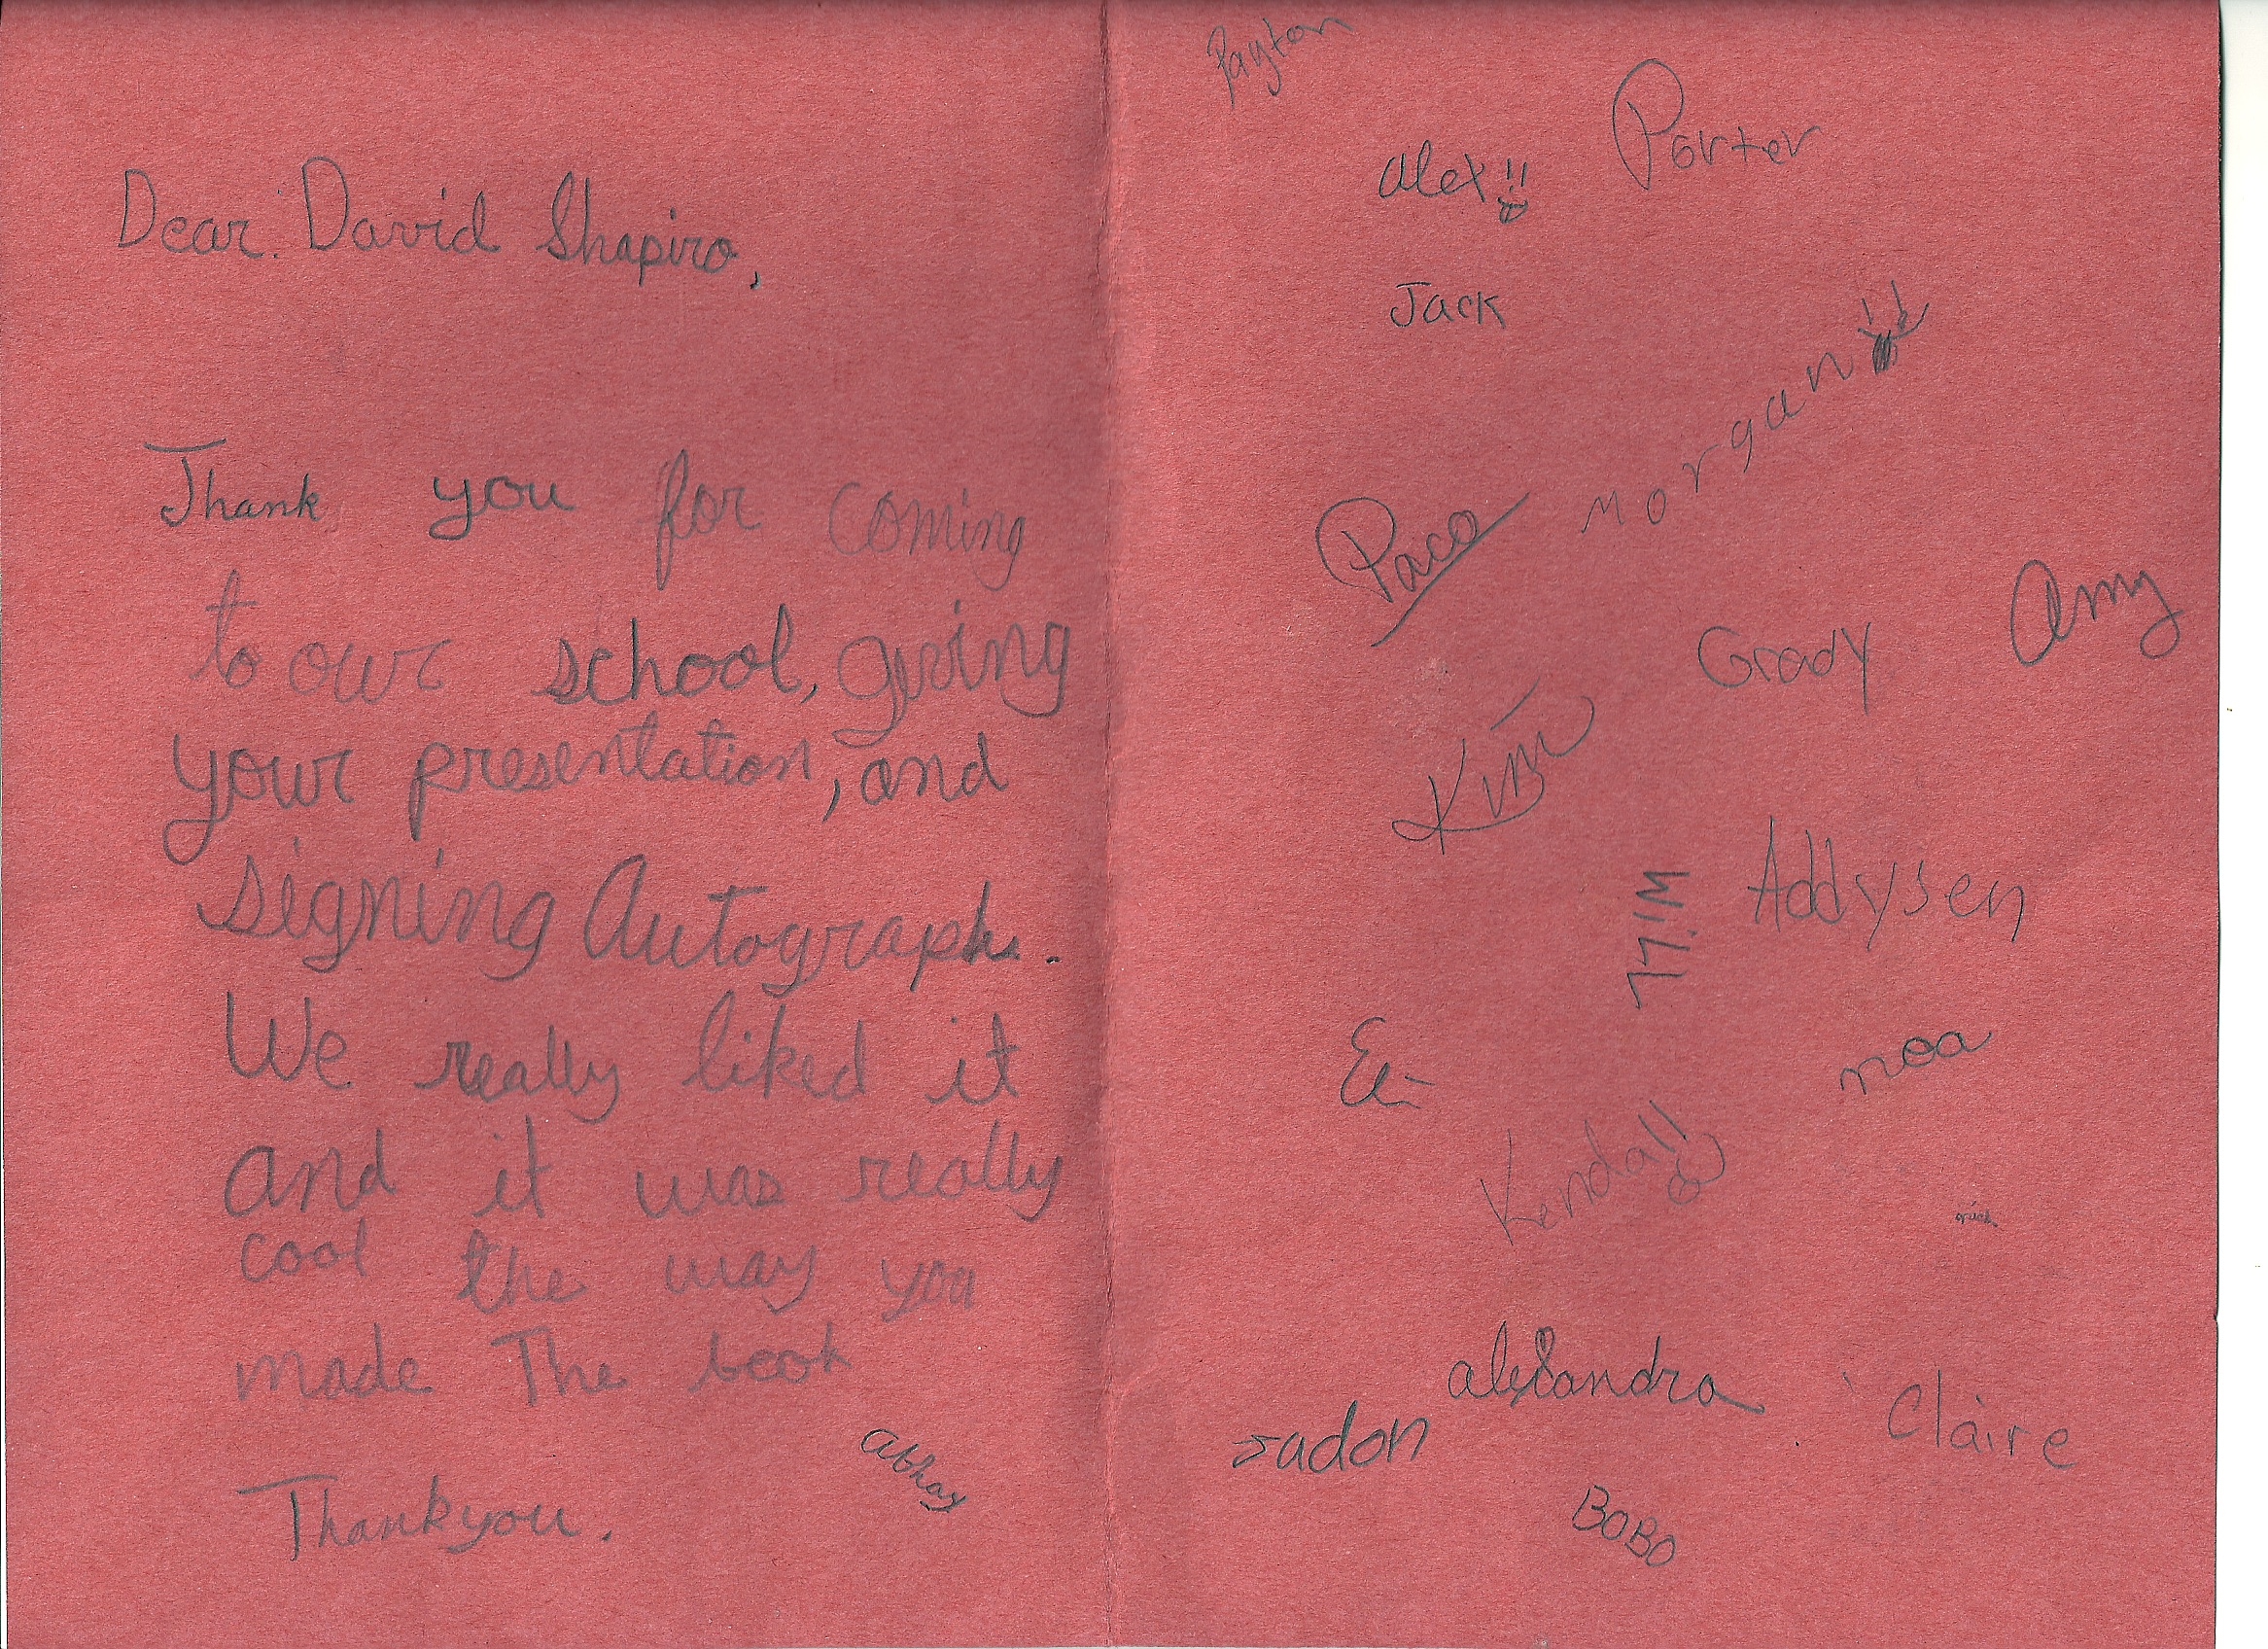 Dear David Shapiro,
Thank you for coming
to our school, giving
your presentation, and
signing Autographs.
We really liked it
and it was really
cool the way you
made The book
Thankyou.
abhay
Payton
Porter
alex!!
Jack
morgan!!
Paco
Amy
Grady
Kim
Addysen
WiLL
noa
Kendall
alexandra
Claire
BOBO